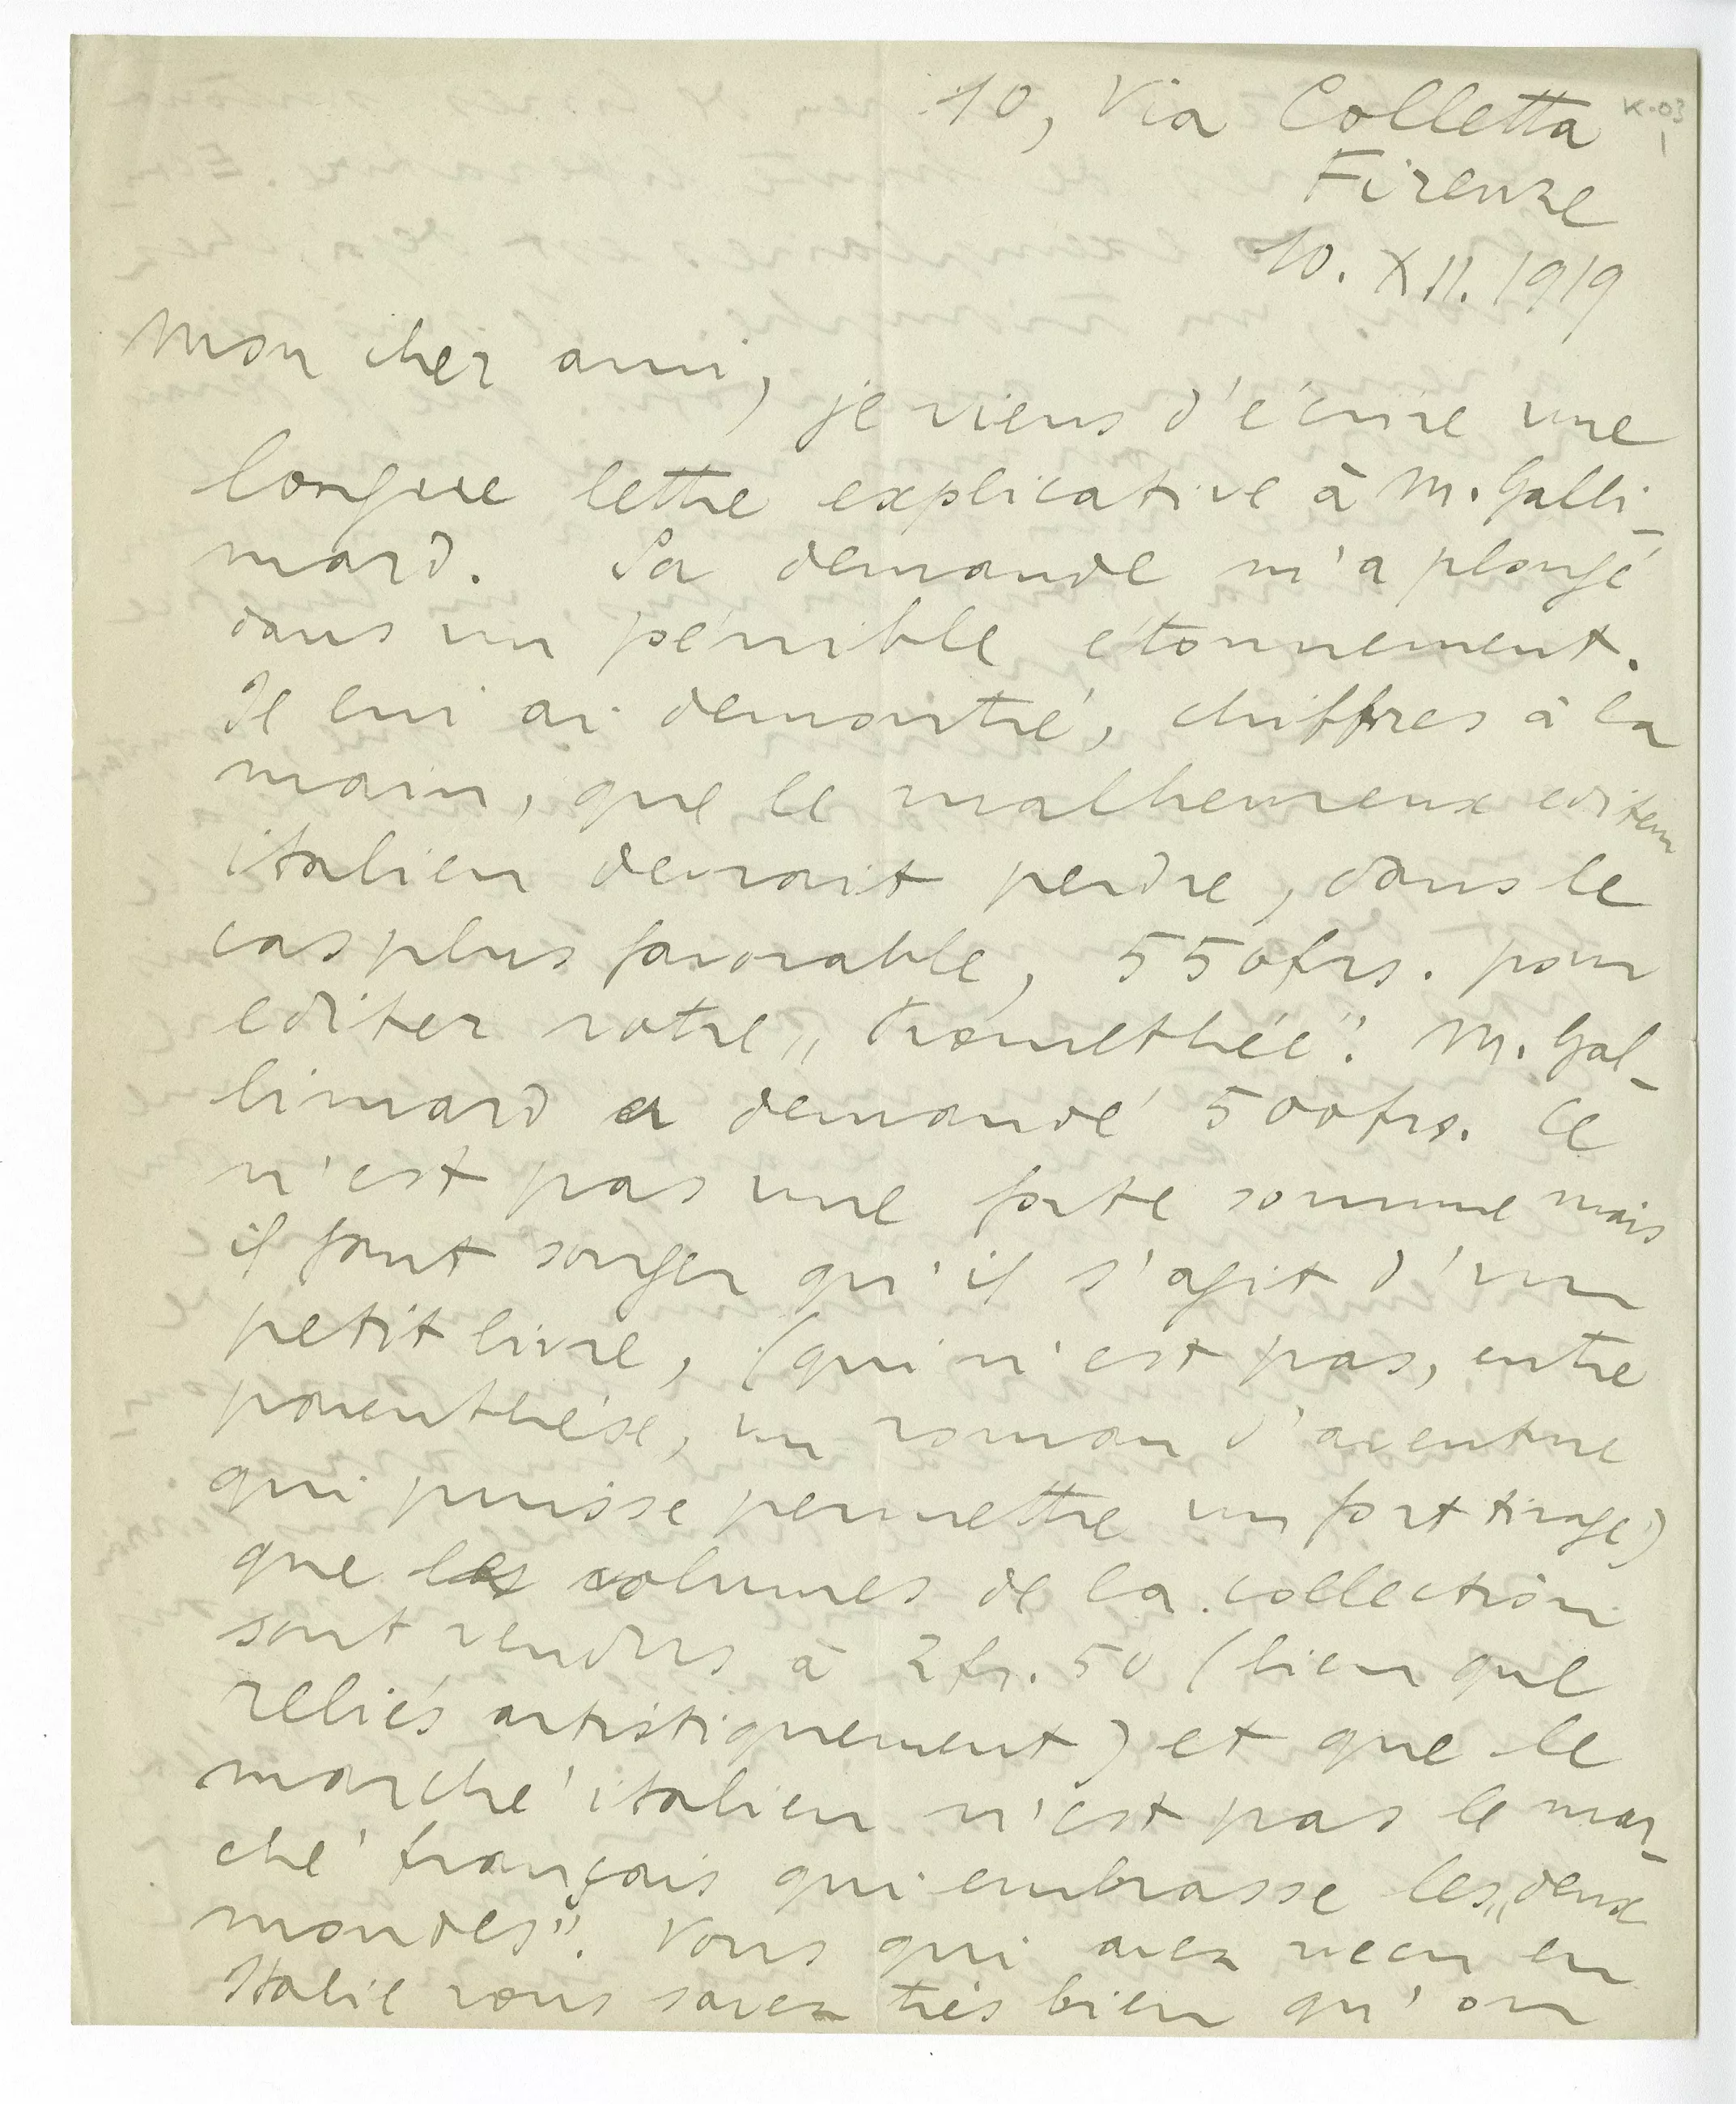 10, Via Colletta
K-03
1
Firenze
10. XII. 1919
Mon cher ami,
je viens d'écrire une
longue lettre explicative à M. Galli-
mard. Sa demande m'a plongé
dans un pénible étonnement.
Je lui ai demontré, chiffres à la
main, que le malheureux editeur
italien devrait perdre, dans le
cas plus favorable, 550 frs. pour
editer votre „Prométhée". M. Gal-
limard a demandé 500 frs. Ce
n'est pas une forte somme mais
il faut songer qu'il s'agit d'un
petit livre, (qui n'est pas, entre
parenthése, un roman d'aventure
qui puisse permettre un fort tirage)
que les volumes de la collection
sont vendus à 2 fr. 50 (bien que
reliés artistiquement) et que le
marché italien n'est pas le mar-
ché français qui embrasse les „deux
mondes". Vous qui avez vecu en
Italie vous savez très bien qu'on